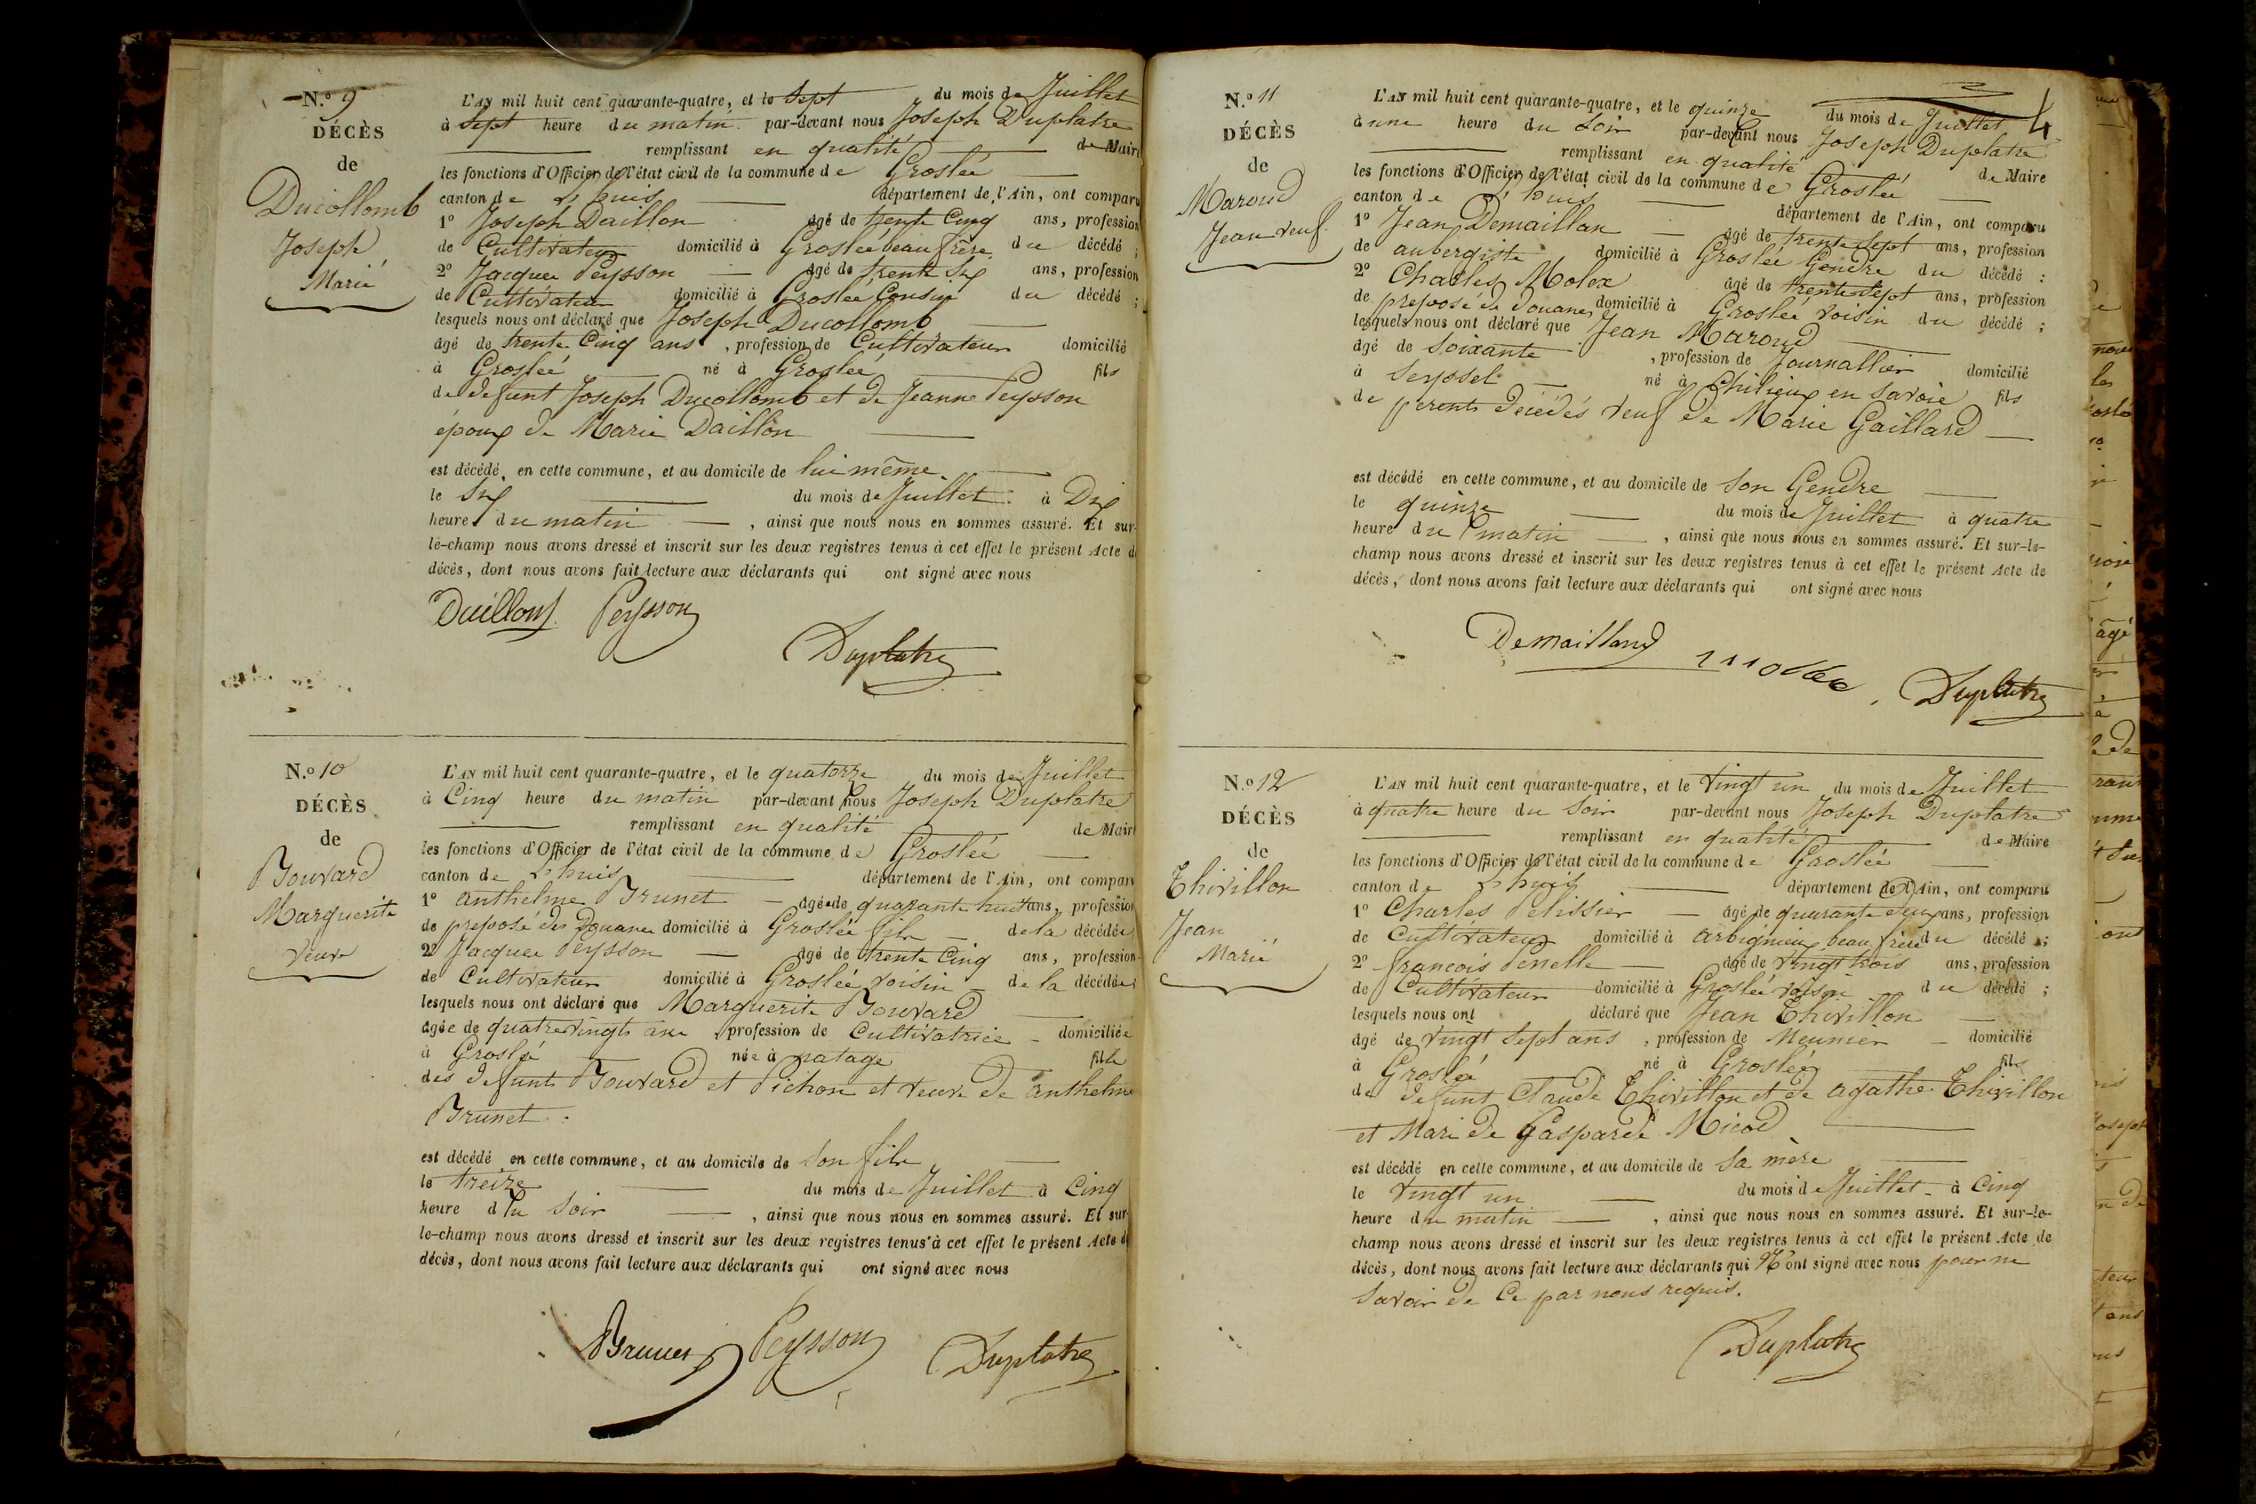 N.º 9
DÉCÈS
de
Ducollomb
Joseph
Marié
L'AN mil huit cent quarante-quatre, et le sept du mois de Juillet
à sept heure du matin par-devant nous Joseph Duplatre
remplissant en qualité de Maire
les fonctions d'Officier de l'état civil de la commune de Groslée
canton de Lhuis département de l'Ain, ont comparu
1º Joseph Daillon agé de trente Cinq ans, profession
de Cultivateur domicilié à Groslée beau frère du décédé ;
2º Jacque Peysson agé de trente six ans, profession
de Cultivateur domicilié à Groslée Cousin du décédé ;
lesquels nous ont déclaré que Joseph Ducollomb
agé de trente Cinq ans , profession de Cultivateur domicilié
à Groslée né à Groslée fils
de defunt Joseph Ducollomb et de Jeanne Peysson
époux de Marie Daillon
est décédé en cette commune, et au domicile de lui même
le six du mois de Juillet à Dix
heure du matin , ainsi que nous nous en sommes assuré. Et sur-
le-champ nous avons dressé et inscrit sur les deux registres tenus à cet effet le présent Acte de
décès, dont nous avons fait lecture aux déclarants qui ont signé avec nous
Daillon Peysson
Duplatre
N.º 10
DÉCÈS
de
Bouvard
Marguerite
Veuve
L'AN mil huit cent quarante-quatre, et le quatorze du mois de Juillet
à Cinq heure du matin par-devant nous Joseph Duplatre
remplissant en qualité de Maire
les fonctions d'Officier de l'état civil de la commune de Groslée
canton de Lhuis département de l'Ain, ont comparu
1º anthelme Brunet agé de quarante huit ans, profession
de preposé des Douane domicilié à Groslée fils de la décédée
2º Jacque Peysson agé de trente Cinq ans, profession
de Cultivateur domicilié à Groslée voisin de la décédée
lesquels nous ont déclaré que Marguerite Bouvard
agée de quatrevingts ans profession de Cultivatrice domiciliée
à Groslée née à natage fille
des defunts Bouvard et Pichon et veuve de anthelme
Brunet
est décédé en cette commune, et au domicile de son fils
le treize du mois de Juillet à Cinq
heure du soir , ainsi que nous nous en sommes assuré. Et sur-
le-champ nous avons dressé et inscrit sur les deux registres tenus à cet effet le présent Acte de
décès, dont nous avons fait lecture aux déclarants qui ont signé avec nous
Brunet Peysson Duplatre
4
N.º 11
DÉCÈS
de
Maroud
Jean veuf
L'AN mil huit cent quarante-quatre, et le quinze du mois de Juillet
à une heure du soir par-devant nous Joseph Duplatre
remplissant en qualité de Maire
les fonctions d'Officier de l'état civil de la commune de Groslée
canton de Lhuis département de l'Ain, ont comparu
1º Jean Demaillan agé de trente sept ans, profession
de aubergiste domicilié à Groslée Gendre du décédé :
2º Charles Molex agé de trente sept ans, profession
de preposé de douane domicilié à Groslée voisin du décédé ;
lesquels nous ont déclaré que Jean Maroud
agé de soixante , profession de Journallier domicilié
à Seyssel né à Chilieux en Savoie fils
de parents décédés veuf de Marie Gaillard
est décédé en cette commune, et au domicile de son Gendre
le quinze du mois de Juillet à quatre
heure du matin , ainsi que nous nous en sommes assuré. Et sur-le-
champ nous avons dressé et inscrit sur les deux registres tenus à cet effet le présent Acte de
décès, dont nous avons fait lecture aux déclarants qui ont signé avec nous
Demailland Duplatre
N.º 12
DÉCÈS
de
Thivillon
Jean
Marié
L'AN mil huit cent quarante-quatre, et le Vingt un du mois de Juillet
à quatre heure du soir par-devant nous Joseph Duplatre
remplissant en qualité de Maire
les fonctions d'Officier de l'état civil de la commune de Groslée
canton de Lhuis département de l'Ain, ont comparu
1º Charles Pelissier agé de quarante deux ans, profession
de Cultivateur domicilié à arbignieu beau frère du décédé ;
2º francois Penelle agé de vingt trois ans, profession
de Cultivateur domicilié à Groslée voisin du décédé ;
lesquels nous ont déclaré que Jean Thivillon
agé de vingt sept ans , profession de Meunier domicilié
à Groslée né à Groslée fils
de defunt Claude Thivillon et de agathe Thivillon
et Mari de Gasparde Micod
est décédé en cette commune, et au domicile de sa mère
le vingt un du mois de Juillet à Cinq
heure du matin , ainsi que nous nous en sommes assuré. Et sur-le-
champ nous avons dressé et inscrit sur les deux registres tenus à cet effet le présent Acte de
décès, dont nous avons fait lecture aux déclarants qui N'ont signé avec nous pour ne
savoir de Ce par nous requis.
Duplatre